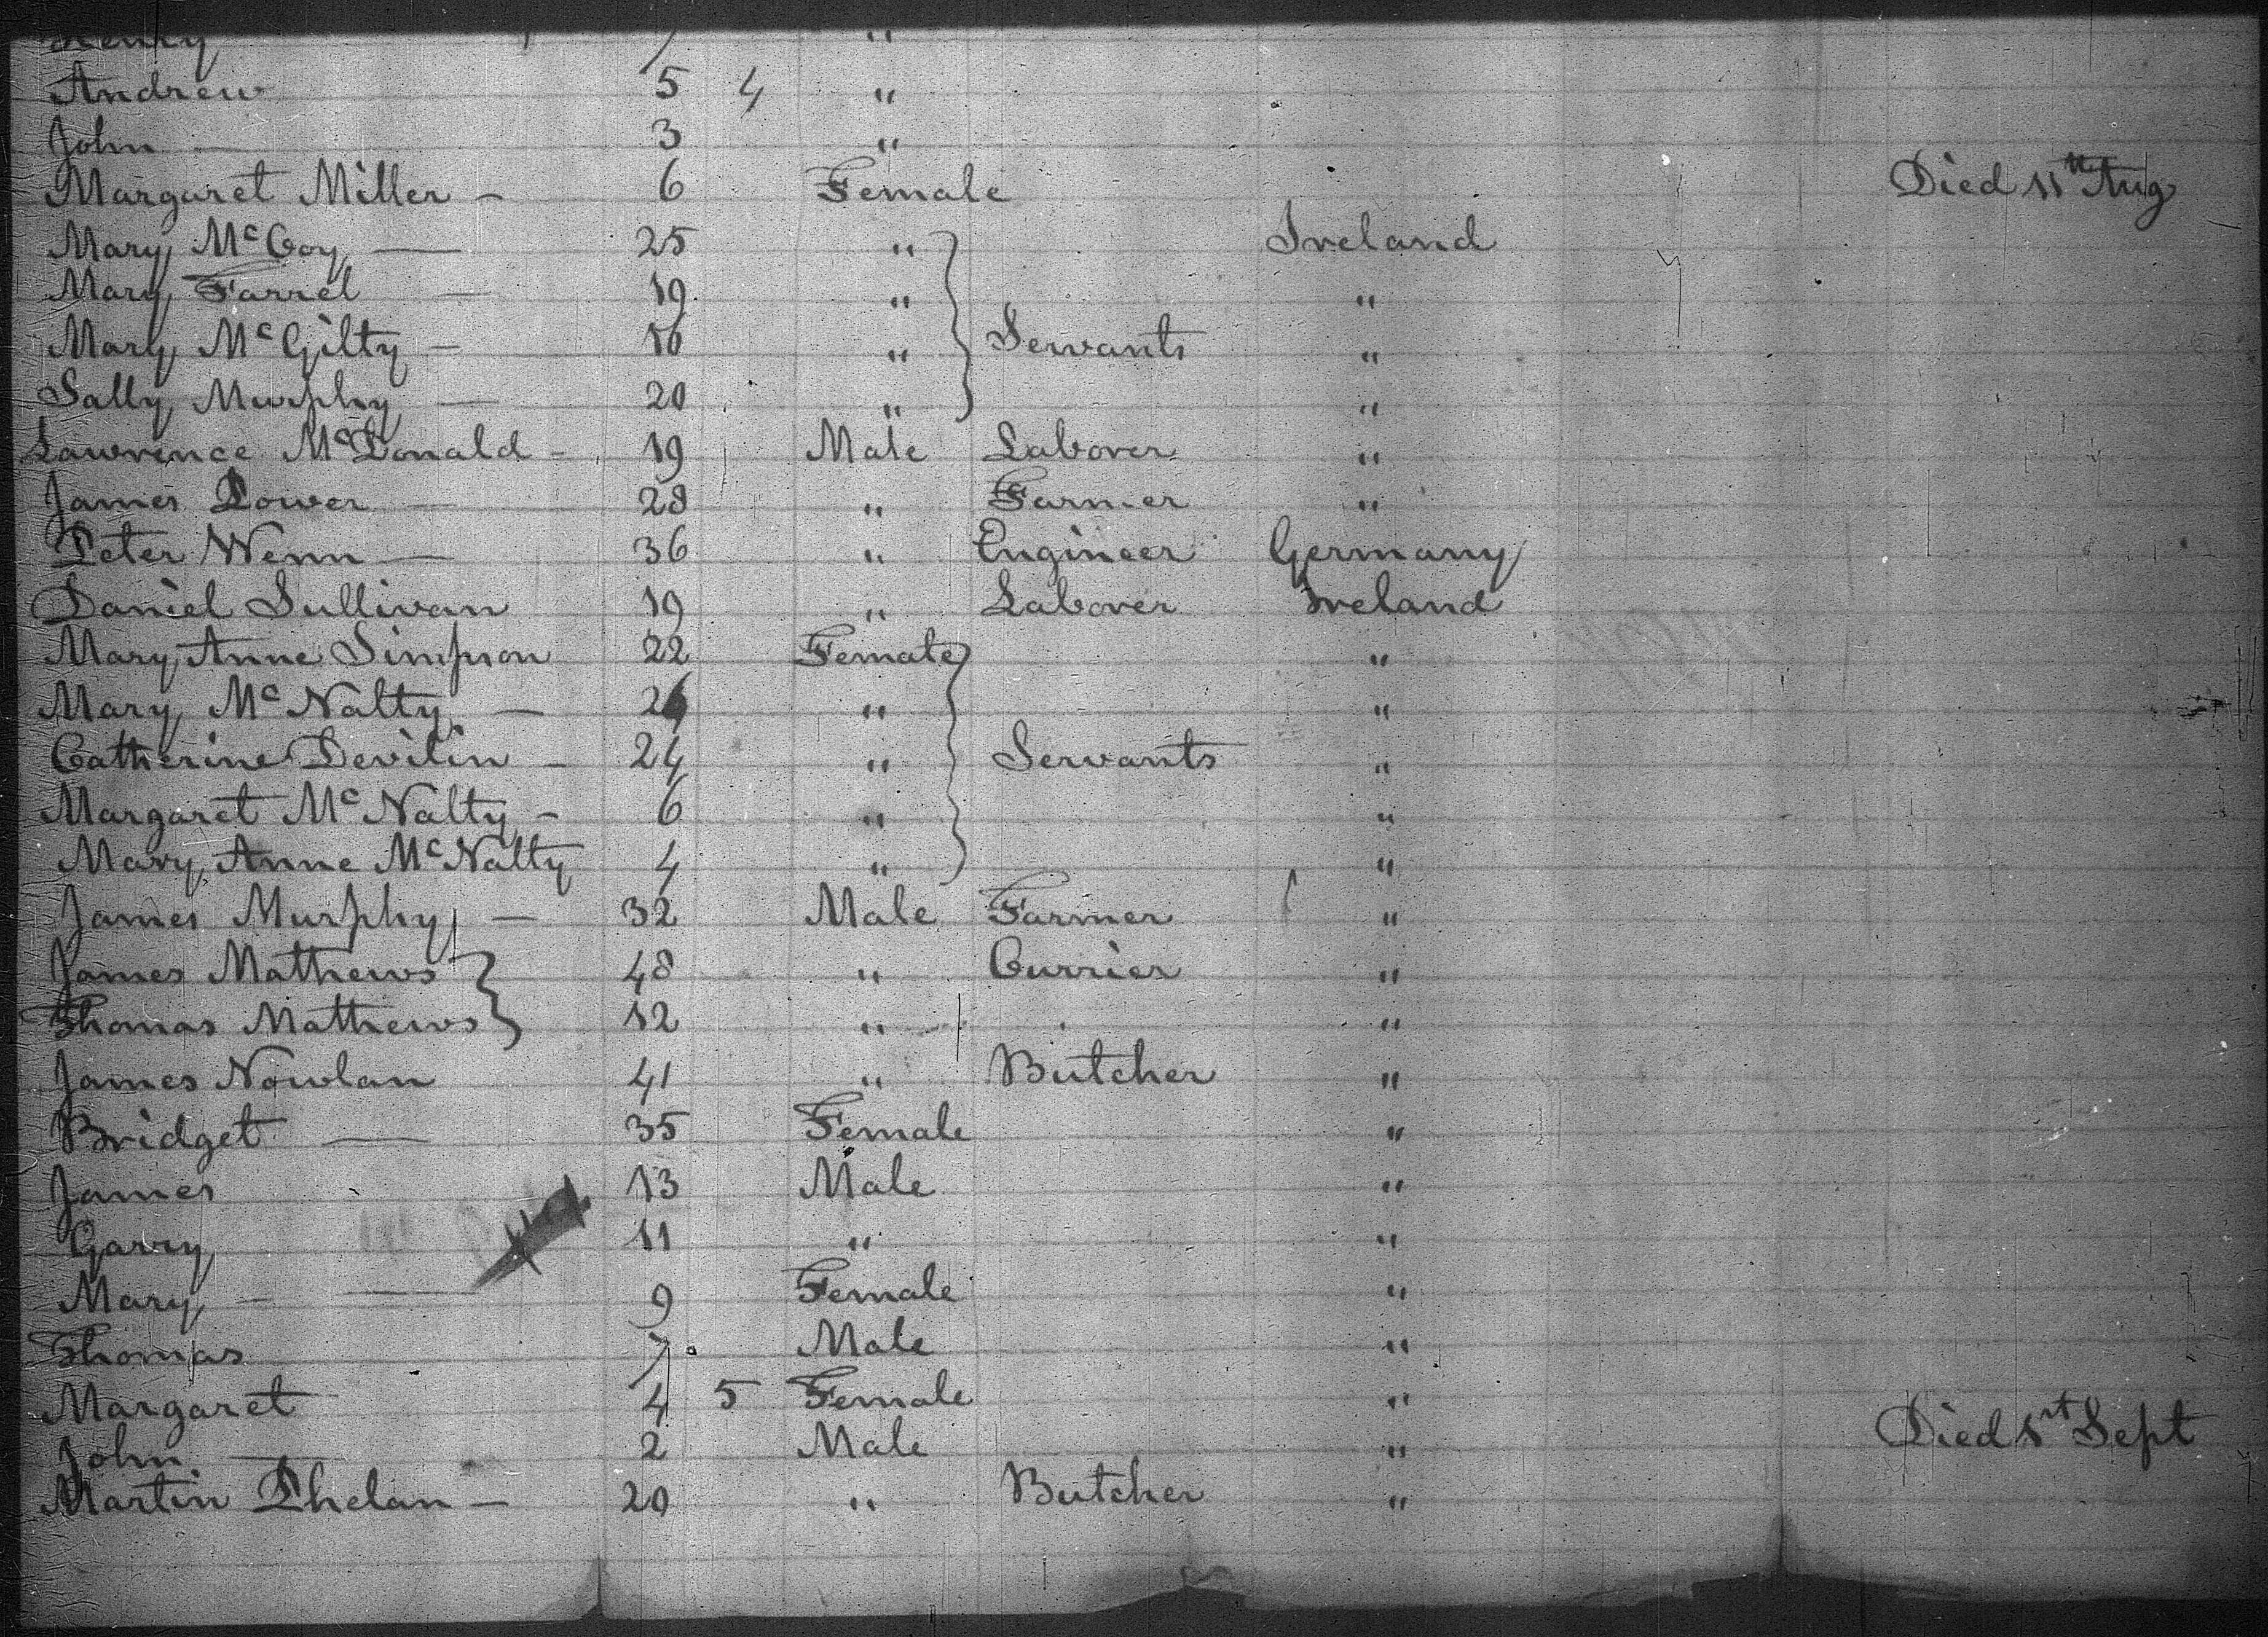 Henry 7 "
Andrew 5 4 "
John — 3 "
Margaret Miller — 6 Female Died 11th Aug
Mary McCoy — 25 " Ireland
Mary Farrel — 19 " "
Mary McGilty — 16 " Servants "
Sally Murphy — 20 " "
Lawrence McDonald — 19 Male Laborer "
James Power — 28 " Farmer "
Peter Wenn — 36 " Engineer Germany
Daniel Sullivan 19 " Laborer Ireland
Mary Anne Simpson 22 Female "
Mary McNalty — " "
Catherine Devilin — 24 " Servants "
Margaret McNalty — 6 " "
Mary Anne McNalty 4 " "
James Murphy — 32 Male Farmer "
James Mathews 48 " Currier "
Thomas Mathews 12 " "
James Nowlan 41 " Butcher "
Bridget — 35 Female "
James 13 Male "
Garry 11 " "
Mary — 9 Female "
Thomas 7 Male "
Margaret 4 5 Female "
John — 2 Male " Died 1st Sept
Martin Phelan — 20 " Butcher "